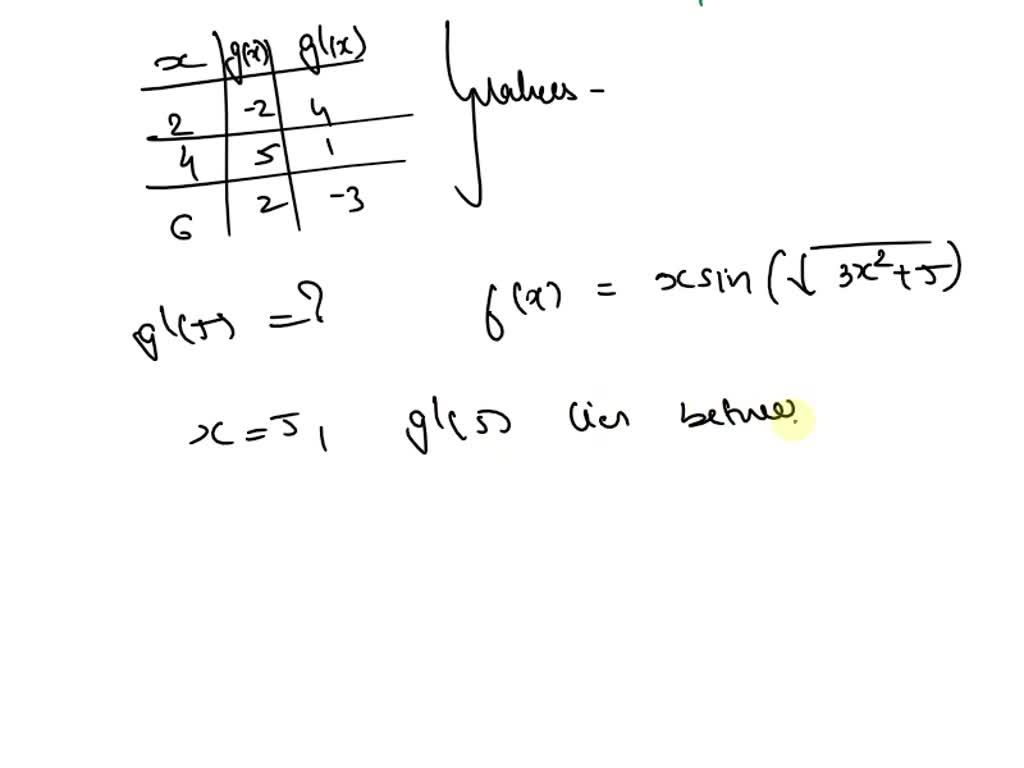 x g(x) g'(x)
2 -2 4
4 5 1
6 2 -3
values -
g'(5) = ? f(x) = x sin (√3x²+5)
x = 5, g'(5) lies betwee